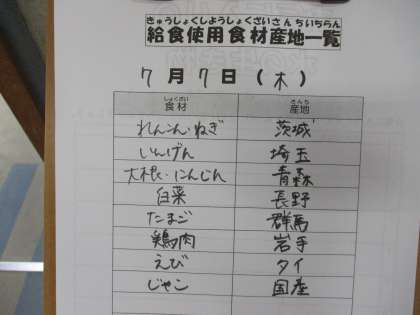 きゅうしょくしようしょくざいさんちいちらん
給食使用食材産地一覧
7月7日(木)
しょくざい さんち
食材 産地
れんこん・ねぎ 茨城
いんげん 埼玉
大根・にんじん 青森
白菜 長野
たまご 群馬
鶏肉 岩手
えび タイ
じゃこ 国産